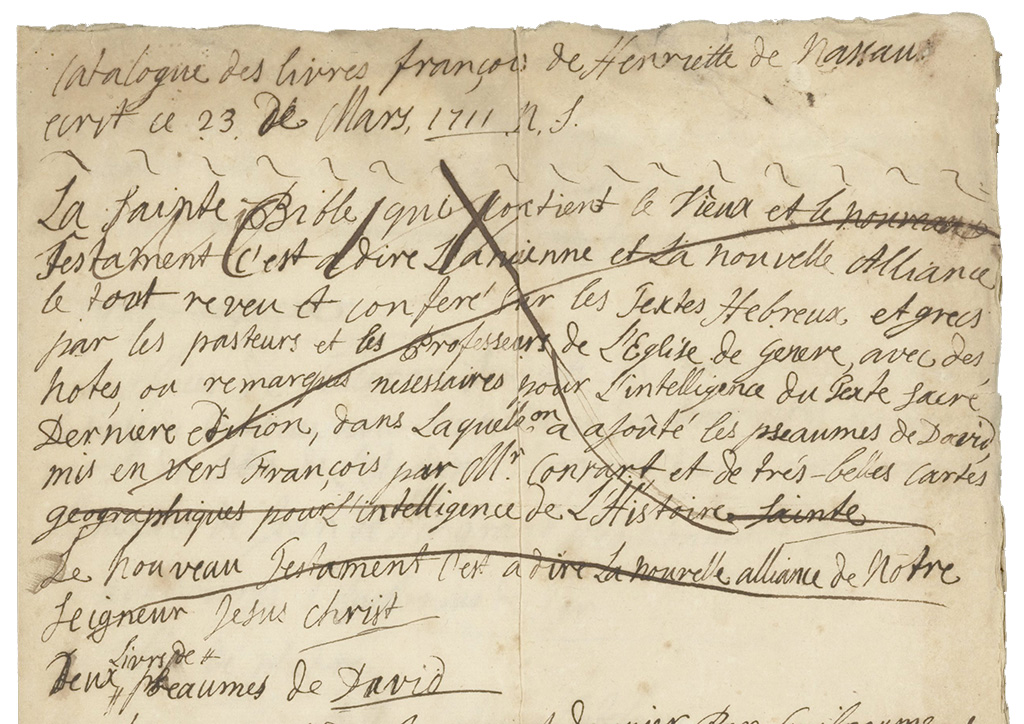 Catalogue des livres françois de Henriette de Nassau
ecrit ce 23 de Mars, 1711 N. S.
La Sainte Bible qui contient le Vieux et le nouveau
Testament c'est a dire L'ancienne et La nouvelle Alliance
le tout reveu et conferé sur les Textes Hebreux et grecs
par les pasteurs et les Professeurs de L'Eglise de Geneve, avec des
notes, ou remarques nesessaires pour L'intelligence du Texte sacré,
Derniere edition, dans Laquelle on a ajoûté les pseaumes de David
mis en vers François par Mr. Conrart et de trés-belles cartes
geographiques pour L'intelligence de L'Histoire Sainte
Le nouveau Testament c'est a dire La nouvelle alliance de Notre
Seigneur Jesus Christ
Livre de #
Deux # pseaumes de David